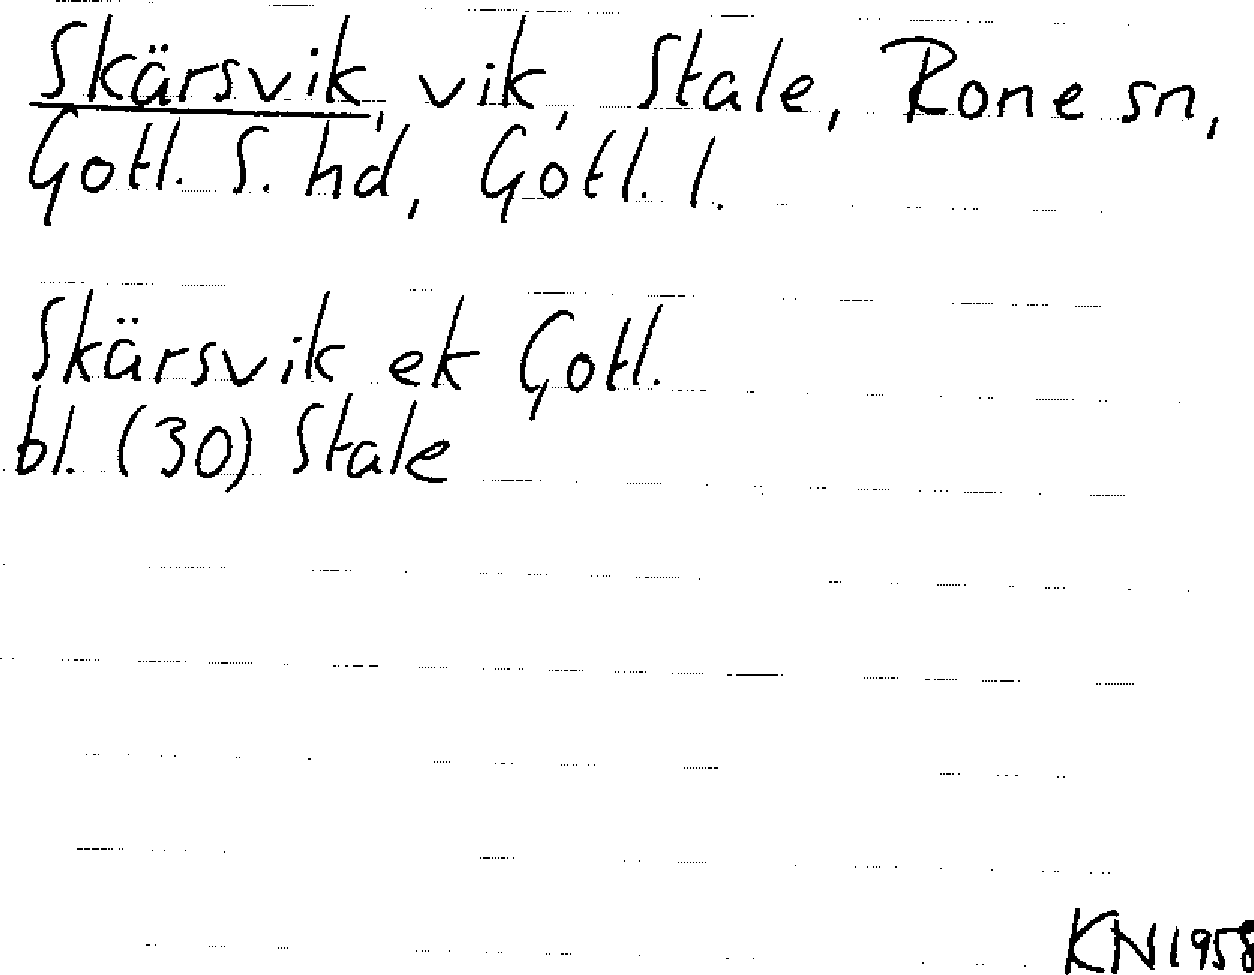 Skärsvik, vik, Stale, Rone sn,
Gotl. S. hd, Gotl. l.
Skärsvik ek Gotl.
bl. (30) Stale
KN1958